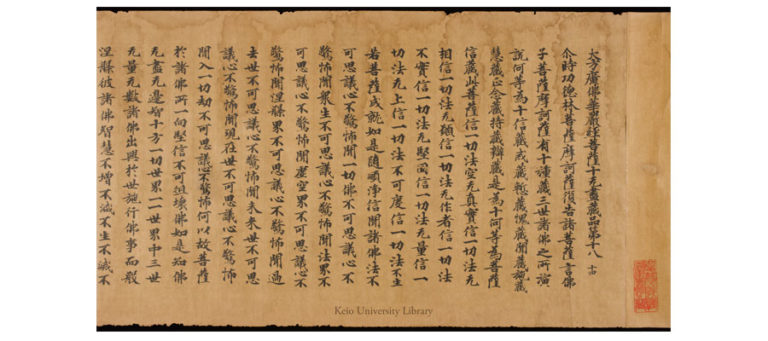 大方廣佛華嚴經菩薩十无盡藏品第十八 十四
尒時功德林菩薩摩訶薩復告諸菩薩言佛
子菩薩摩訶薩有十種藏三世諸佛之所演
說何等為十信藏戒藏慙藏愧藏聞藏施藏
慧藏正念藏持藏辯藏是為十何等為菩薩
信藏此菩薩信一切法空无真實信一切法无
相信一切法无願信一切法无作者信一切法
不實信一切法无堅固信一切法无量信一
切法无上信一切法不可度信一切法不生
若菩薩成就如是隨順淨信聞諸佛法不
可思議心不驚怖聞一切佛不可思議心不
驚怖聞衆生不可思議心不驚怖聞法界不
可思議心不驚怖聞虛空界不可思議心不
驚怖聞涅槃界不可思議心不驚怖聞過
去世不可思議心不驚怖聞未来世不可思
議心不驚怖聞現在世不可思議心不驚怖
聞入一切劫不可思議心不驚怖何以故菩薩
於諸佛所一向堅信不可沮壞佛如是知佛
无盡无邊智十方一切世界一一世界中三世
无量无數諸佛出興於世施行佛事而般
涅槃彼諸佛智慧不增不減不生不滅不
Keio University Library